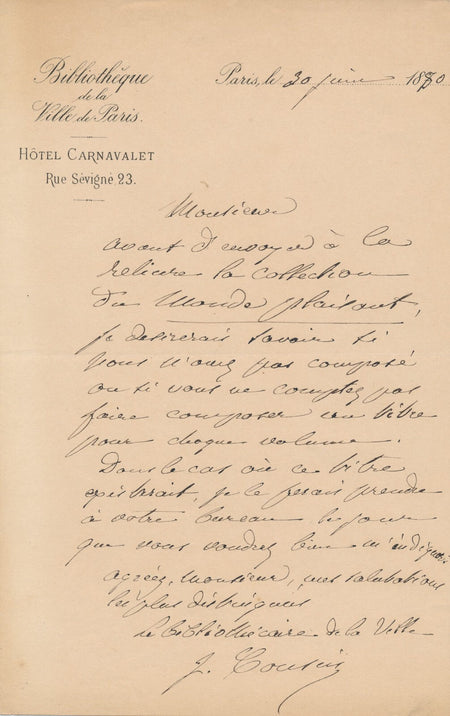 Bibliothèque
de la
Ville de Paris.
HÔTEL CARNAVALET
Rue Sévigné 23.
Paris, le 30 juin 1880
Monsieur
avant d'envoyer à la
reliure la collection
du Monde plaisant,
je desirerais savoir si
vous n'avez pas composé
ou si vous ne comptez pas
faire composer un titre
pour chaque volume.
Dans le cas où ce titre
existerait, je le ferais prendre
à votre bureau le jour
que vous voudrez bien m'indiquer
agréez, Monsieur, mes salutations
les plus distinguées
Le bibliothécaire de la Ville
J. Cousin